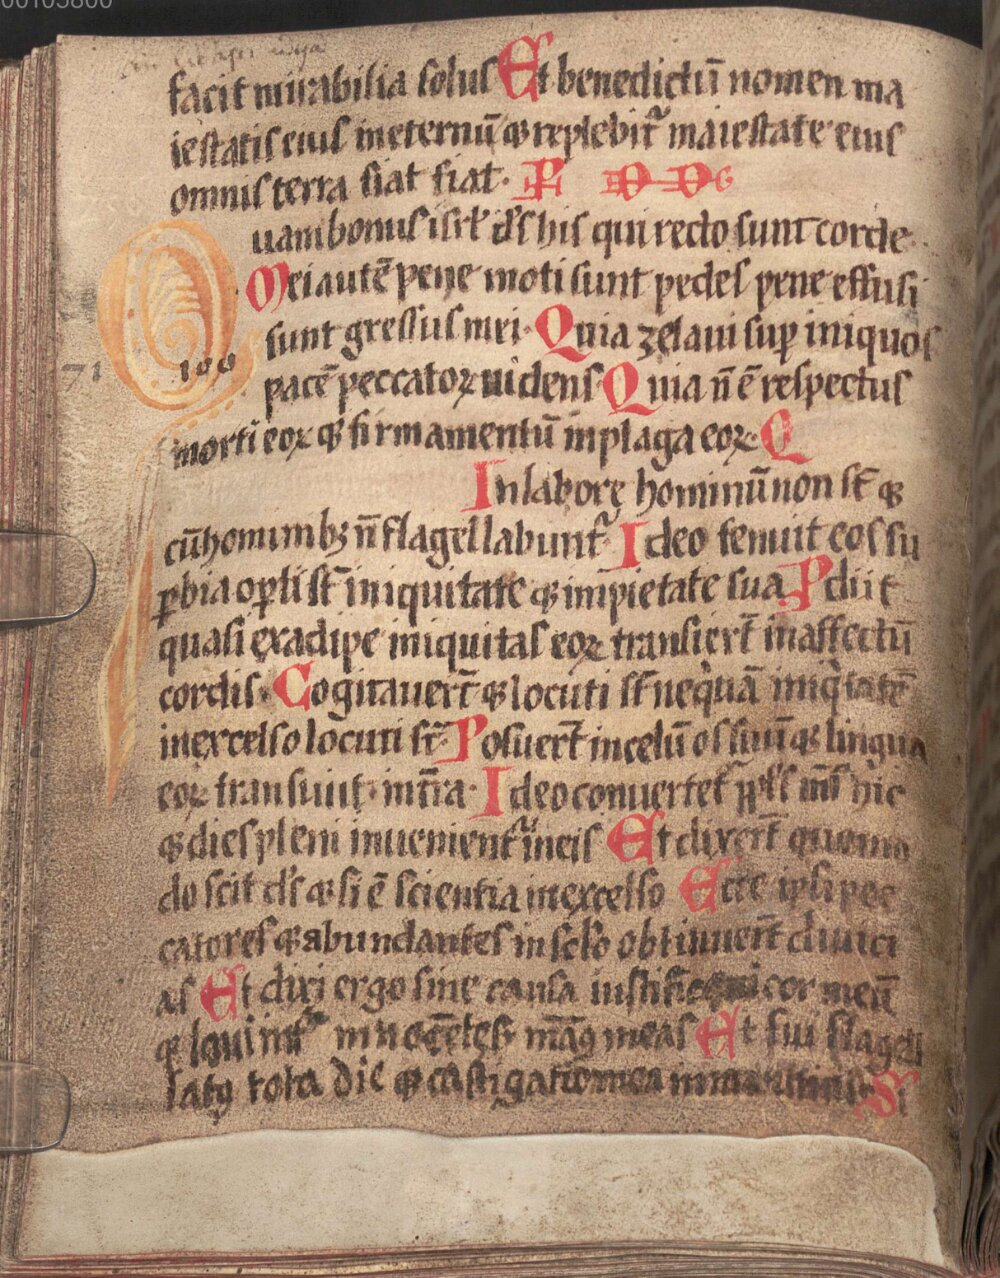 facit mirabilia solus Et benedictū nomen ma
iestatis eius ineternū ⁊ replebit᷑ maiestate eius
omnis terra fiat fiat. P
uam bonus isrl' d's his qui recto sunt corde
Mei autē pene moti sunt pedes pene effusi
sunt gressus mei. Quia zelaui sup iniquos
71
pacē peccatoꝝ uidens Quia n̄ ē respectus
morti eoꝝ ⁊ firmamentū inplaga eoꝝ. Q
Inlabore hominū non st̄ ⁊
cū hominibꝫ n̄ flagellabunt᷑ Ideo tenuit eos su
ꝑbia oꝑti st̄ iniquitate ⁊ impietate sua Pdiit
quasi exadipe iniquitas eoꝝ transiert̄ inaffectū
cordis. Cogitauert̄ ⁊ locuti st̄ neq'uā iniq'tatē
inexcelso locuti st̄. Posuert̄ incelū os suū ⁊ lingua
eoꝝ transiuit intr̄a. Ideo conuertet᷑ ppl's ms̄ hic
⁊ dies pleni inuenient᷑ ineis Et dixert̄ quomo
do scit d's ⁊ si ē scientia inexcelso Ecce ipsi pec
catores ⁊ abundantes inselo obtinuert̄ diuici
as Et dixi ergo sine causa iustificaui cor meū
⁊ laui int᷑ innocētes māꝯ meas Et fui flagel
latꝯ tota die ⁊ castigatio mea inmatutinis Si